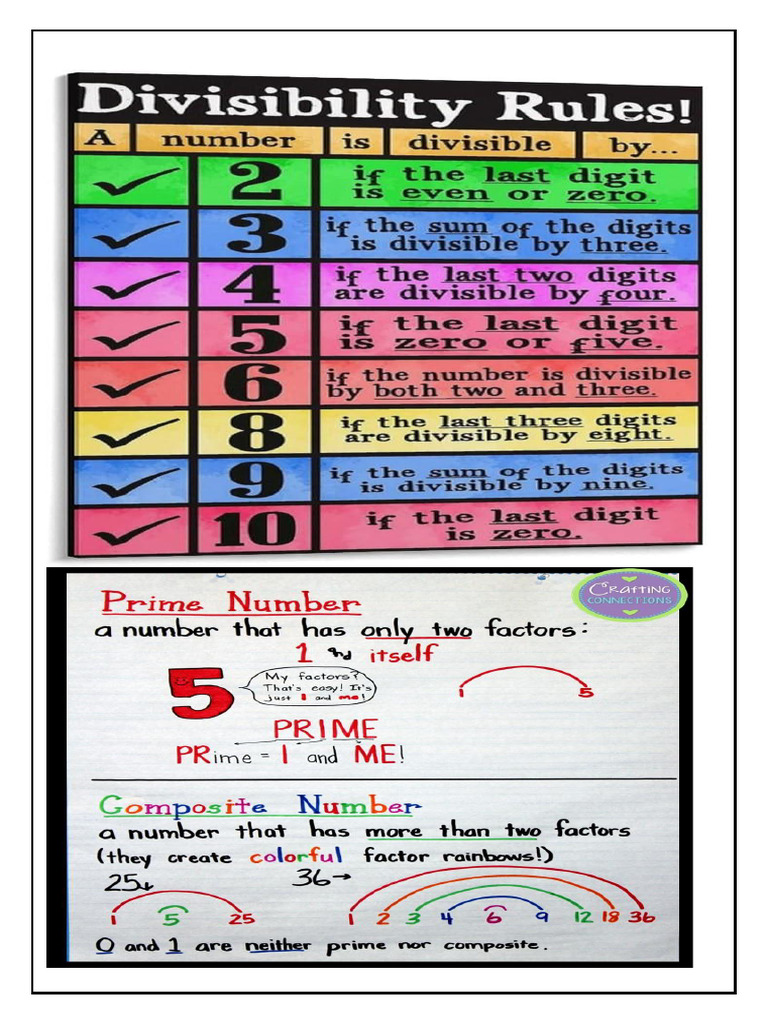 Divisibility Rules!
A number is divisible by...
2 if the last digit
is even or zero.
3 if the sum of the digits
is divisible by three.
4 if the last two digits
are divisible by four.
5 if the last digit
is zero or five.
6 if the number is divisible
by both two and three.
8 if the last three digits
are divisible by eight.
9 if the sum of the digits
is divisible by nine.
10 if the last digit
is zero.
Crafting
CONNECTIONS
Prime Number
a number that has only two factors:
1 and itself
5
My factors?
That's easy! It's
just 1 and me!
1 5
PRIME
PRime = 1 and ME!
Composite Number
a number that has more than two factors
(they create colorful factor rainbows!)
25 36
1 5 25 1 2 3 4 6 9 12 18 36
0 and 1 are neither prime nor composite.